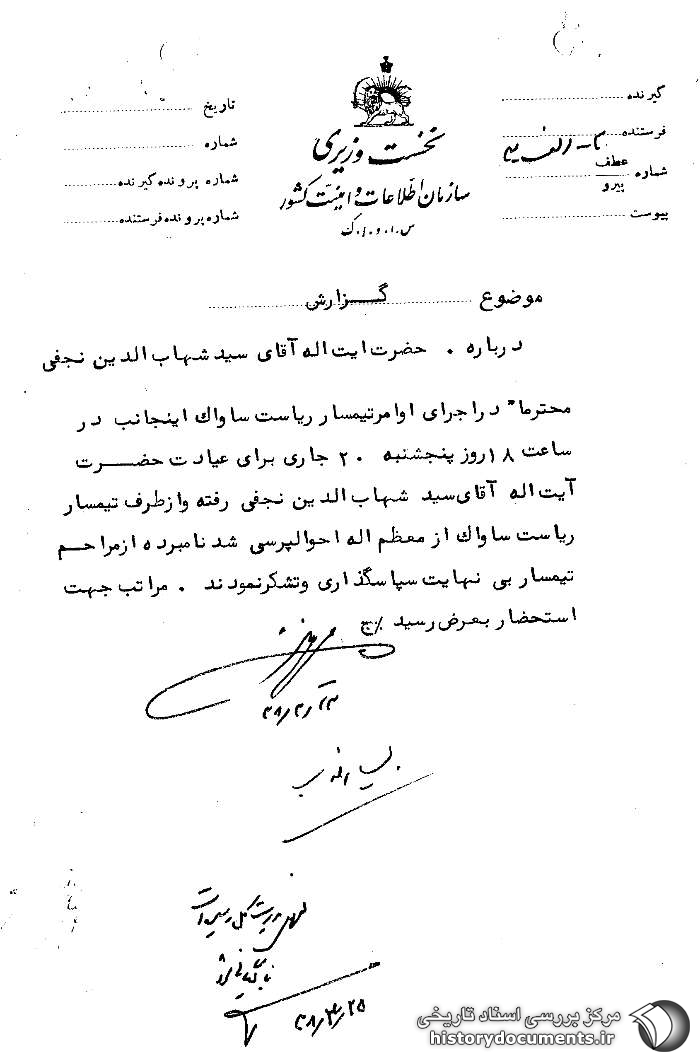 گیرنده
فرستنده
شماره عطف
پیرو
پیوست
نخست وزیری
سازمان اطلاعات و امنیت کشور
س.ا.و.ا.ک
تاریخ
شماره
شماره پرونده گیرنده
شماره پرونده فرستنده
موضوع گـــزارش
درباره . حضرت ایت اله آقای سید شهاب الدین نجفی
محترما" در اجرای اوامر تیمسار ریاست ساواک اینجانب در
ساعت ۱۸ روز پنجشنبه ۲۰ جاری برای عیادت حضـــرت
آیت اله آقای سید شهاب الدین نجفی رفته و از طرف تیمسار
ریاست ساواک از معظم اله احوالپرسی شد نامبرده از مراحـم
تیمسار بی نهایت سپاسگذاری و تشکر نمودند . مراتب جهت
استحضار بعرض رسید ٪ج
۳۸/۲/۲۳
۳۸/۳/۲۵
مرکز بررسی اسناد تاریخی
historydocuments.ir